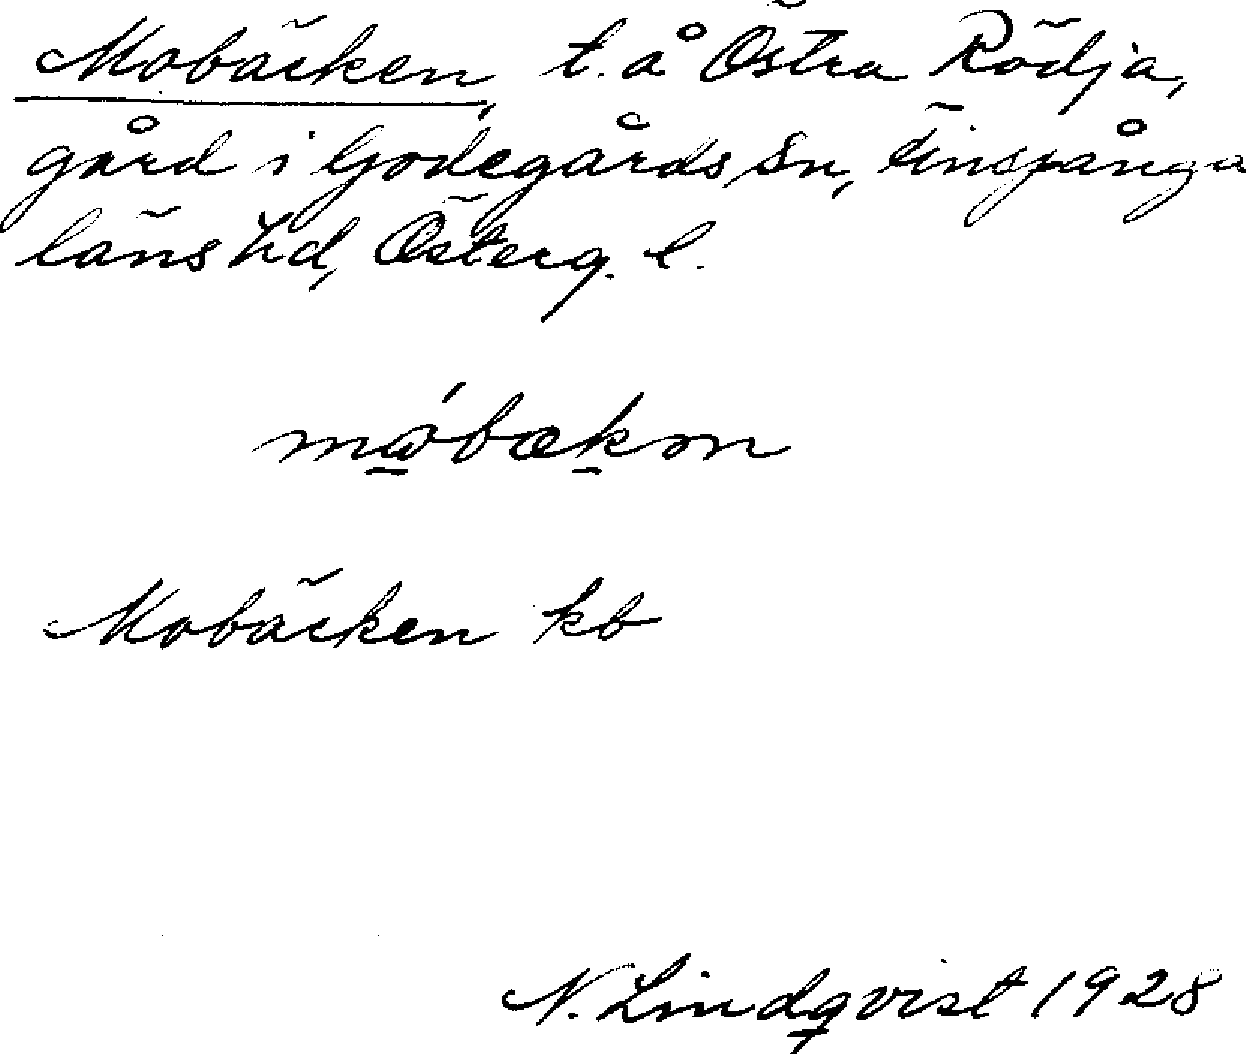 Mobäcken, t. å Östra Rödja,
gård i Godegårds sn, Finspånga
läns hd, Österg. l.
Mobäcken kb
N. Lindqvist 1928